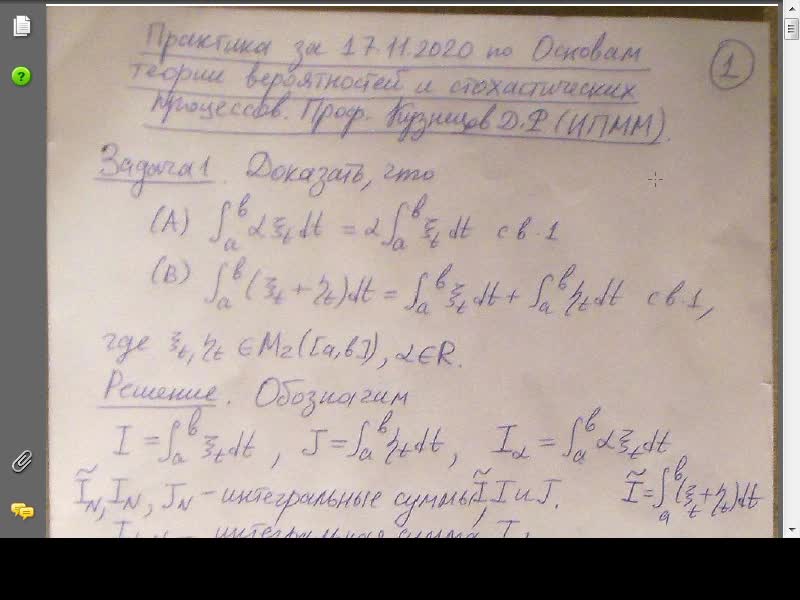 Практика за 17.11.2020 по Основам
теории вероятностей и стохастических
процессов. Проф. Кузнецов Д.Ф (ИПММ).
1
Задача 1. Доказать, что
(A) ∫_a^b αξ_t dt = α∫_a^b ξ_t dt с в. 1
(B) ∫_a^b (ξ_t + η_t)dt = ∫_a^b ξ_t dt + ∫_a^b η_t dt с в.1,
где ξ_t, η_t ∈ M_2([a,b]), α∈R.
Решение. Обозначим
I = ∫_a^b ξ_t dt, J = ∫_a^b η_t dt, I_α = ∫_a^b αξ_t dt
Ĩ_N, I_N, J_N – интегральные суммы Ĩ, I и J. Ĩ = ∫_a^b (ξ_t + η_t)dt
интегральная сумма